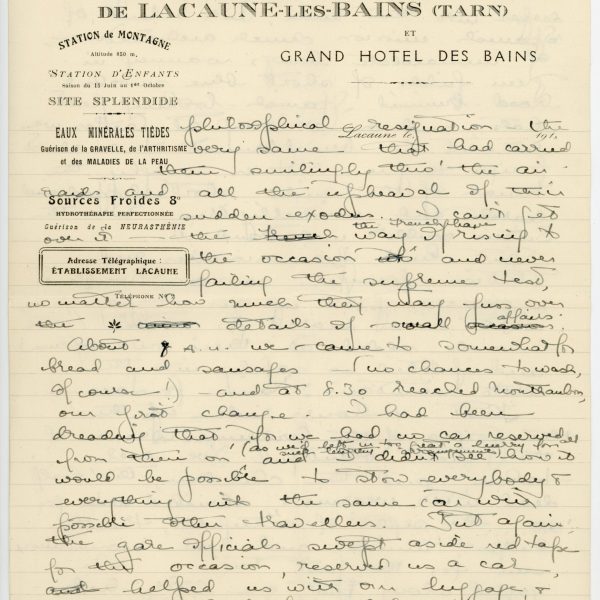 DE LACAUNE-LES-BAINS (TARN)
ET
GRAND HOTEL DES BAINS
STATION de MONTAGNE
Altitude 850 m.
STATION D'ENFANTS
Saison du 15 Juin au 1er Octobre
SITE SPLENDIDE
EAUX MINÉRALES TIÈDES
Guérison de la GRAVELLE, de l'ARTHRITISME
et des MALADIES DE LA PEAU
Sources Froides 8°
HYDROTHÉRAPIE PERFECTIONNÉE
Guérison de la NEURASTHÉNIE
Adresse Télégraphique :
ÉTABLISSEMENT LACAUNE
TÉLÉPHONE No
Lacaune le, 191
philosophical resignation - the
very same - that had carried
them smilingly thro' the air-
raids and all the upheaval of their
sudden exodus. I can't get
over it - the French way of rising to
the french have
the occasion and never
failing the supreme test,
no matter how much they may fuss over
the details of small affairs.
About 8 A.M. we came to somewhat for
bread and sausages - (no chances to wash,
of course!) - and at 8.30 reached Montauban,
our first change. I had been
dreading that for we had no car reserved
(as we'd left in too great a hurry for all
such)
from then on and didn't see how it
would be possible to stow everybody &
everything into the same car with
possible other travellers. But again
the gare officials swept aside red tape
for the occasion, reserved us a car,
and helped us with our luggage, &